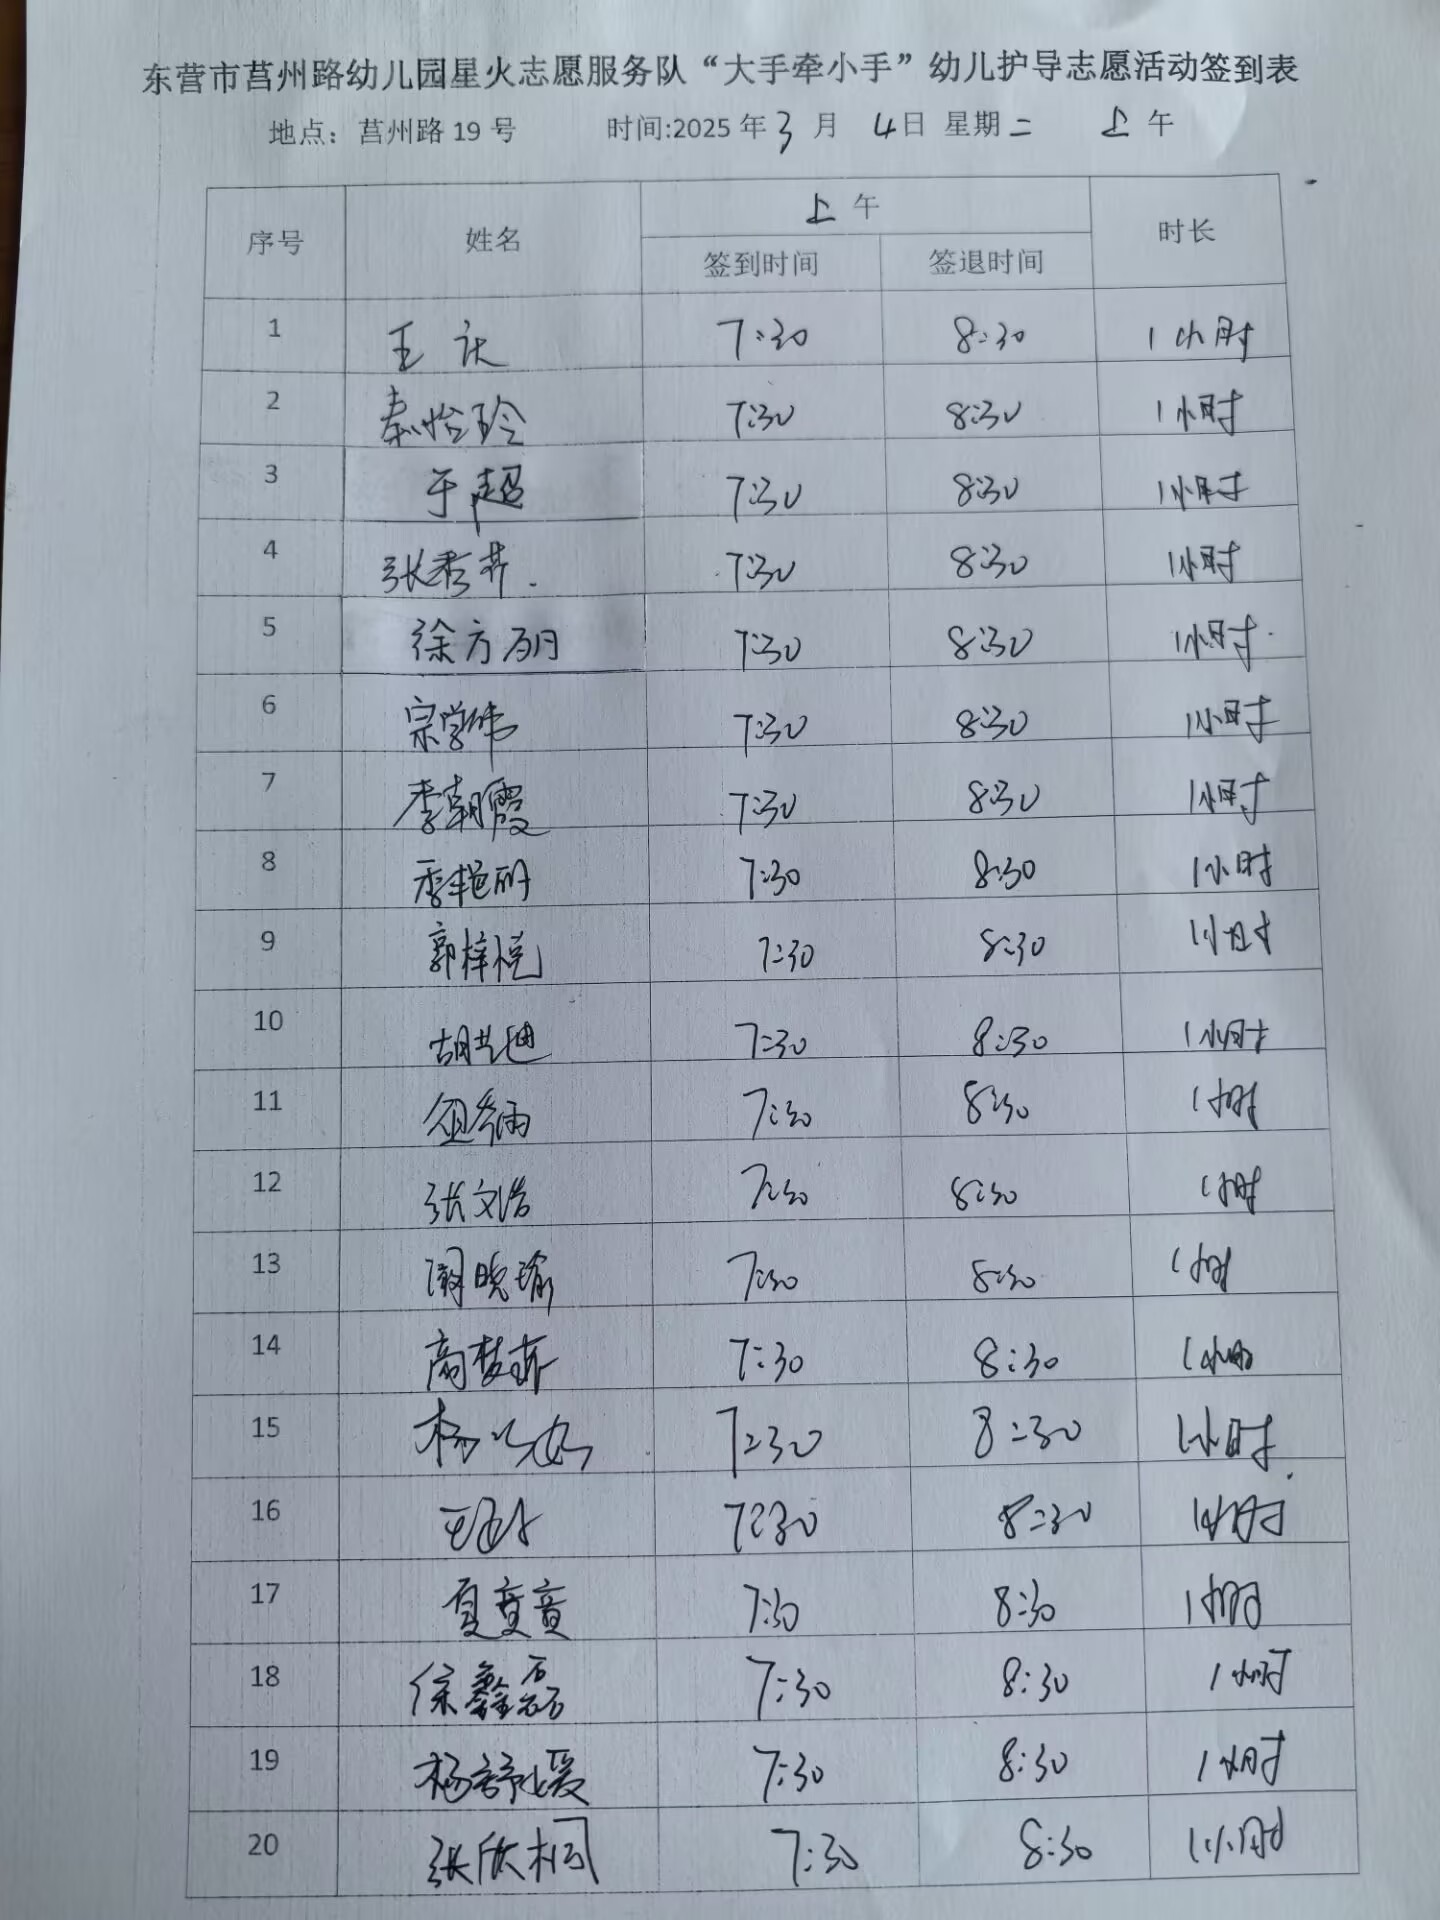 东营市莒州路幼儿园星火志愿服务队“大手牵小手”幼儿护导志愿活动签到表
地点：莒州路 19 号 时间:2025 年 3 月 4 日 星期二 上午
序号 姓名 上午 时长
签到时间 签退时间
1 王庆 7:30 8:30 1小时
2 秦怡玲 7:30 8:30 1小时
3 于超 7:30 8:30 1小时
4 张秀芹 7:30 8:30 1小时
5 徐方丽 7:30 8:30 1小时
6 宗学伟 7:30 8:30 1小时
7 李朝霞 7:30 8:30 1小时
8 季艳丽 7:30 8:30 1小时
9 郭梓悦 7:30 8:30 1小时
10 胡兰迪 7:30 8:30 1小时
11 7:30 8:30 1小时
12 张文浩 7:30 8:30 1小时
13 周晓瑜 7:30 8:30 1小时
14 高梦菲 7:30 8:30 1小时
15 杨 7:30 8:30 1小时
16 王 7:30 8:30 1小时
17 夏童童 7:30 8:30 1小时
18 徐鑫磊 7:30 8:30 1小时
19 杨舒媛 7:30 8:30 1小时
20 张欣桐 7:30 8:30 1小时